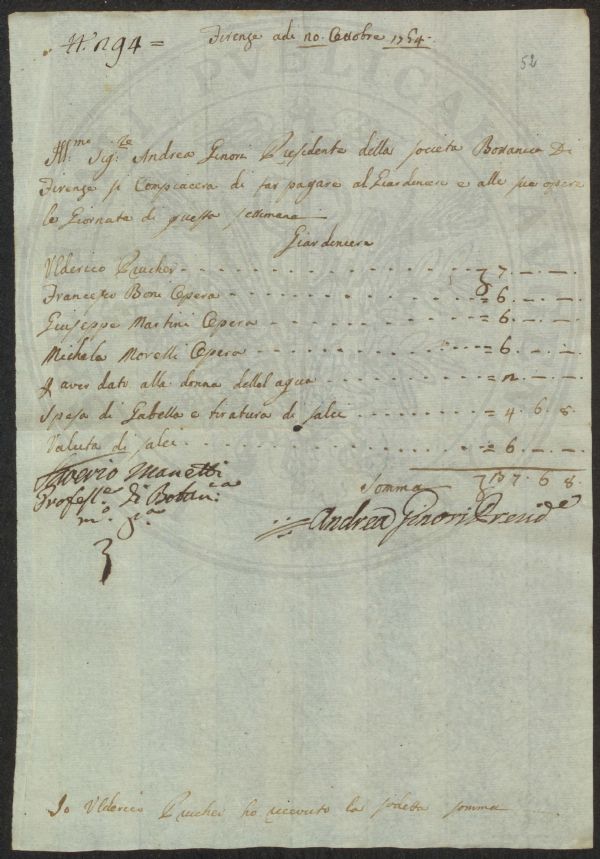 N.° 294 =
Firenze adi 20. Ottobre 1764.
52
Ill:mo Sig:re Andrea Ginori Presidente della Società Bottanica Di
Firenze si Compiacerà di far pagare al Giardiniere e alle sue opere
le Giornate di questa settimana
Giardiniera
Ulderico Prucher - - - 7. —. —
Francesco Boni Opera - - - = 6. —. —
Giuseppe Martini Opera - - - = 6. —. —
Michele Morelli Opera - - - = 6. —. —
P aver dato alla donna dell'agua - - - = 2. —. —
Spesa di Gabella e tiratura di salci - - - = 4. 6. 8.
Valuta di salci - - - = 6. —. —
Somma 37 6 8
Saverio Manetti
Profess:e di Bottan:ca
m:o p:a
Andrea Ginori Presid:e
Io Ulderico Prucher ho ricevuto la sodetta somma